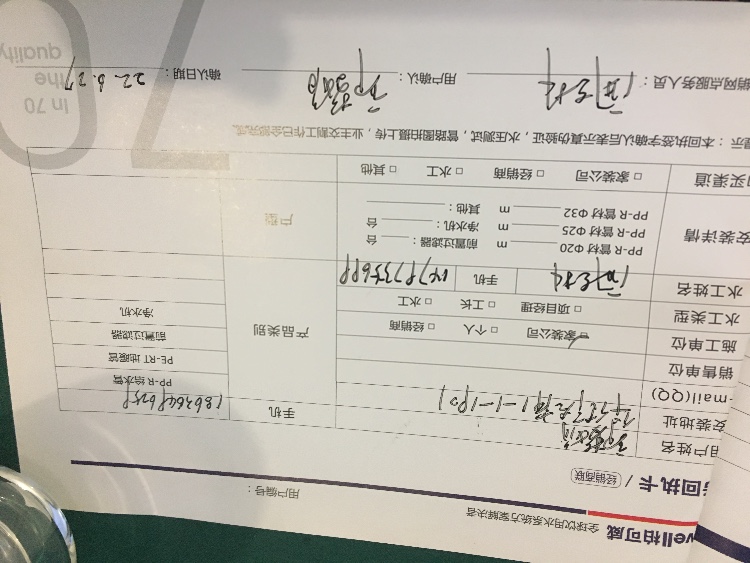 vell柏可威 全球饮用水系统方案解决者
回执卡 / 经销商联
用户编号：
用户姓名 手机
安装地址 1-1-1901
-mail(QQ)
销售单位
施工单位 家装公司 □ 个人 □ 经销商
水工类型 □ 项目经理 □ 工长 □ 水工
水工姓名 手机
产品类别
PP-R 给水管
PE-RT 地暖管
前置过滤器
净水机
安装详情
PP-R 管材 Φ20 m 前置过滤器： 台
PP-R 管材 Φ25 m 净水机： 台
PP-R 管材 Φ32 m 其他：
户型
购买渠道 □ 家装公司 □ 经销商 □ 水工 □ 其他
提示：本回执签字确认后表示真伪验证，水压测试，管路图拍摄上传，业主交割工作已全部完成。
销网点服务人员： 用户确认： 确认日期：22.6.27
70
In 70
the
quality